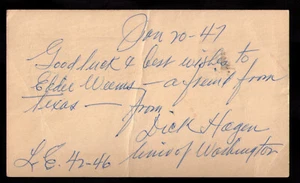 Jan 20-47
Good luck & best wishes to
Eddie Weems - a friend from
Texas - from
Dick Hagen
L.E. 42-46 Univ of Washington